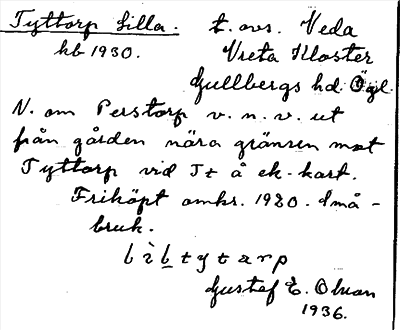 Tyttorp Lilla. t. avs. Veda
kb 1930. Vreta Kloster
Gullbergs hd. Ögl.
N. om Perstorp v. n. v. ut
från gården nära gränsen mot
Tyttorp vid T± å ek. kart.
Friköpt omkr. 1920. Små-
bruk.
Gustaf E. Olson
1936.